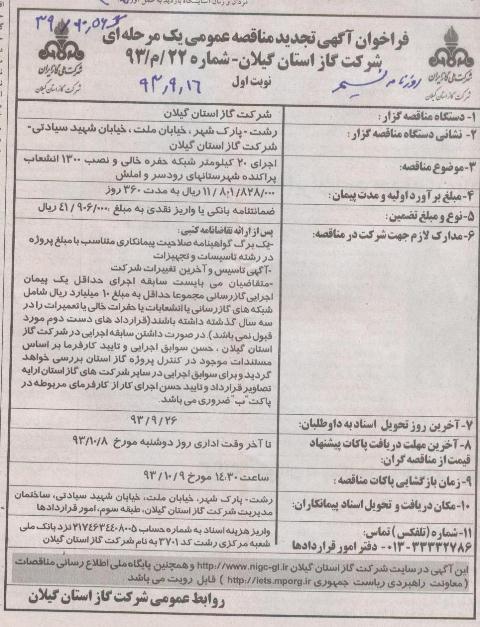 فراخوان آگهی تجدید مناقصه عمومی یک مرحله ای
شرکت گاز استان گیلان - شماره ۲۲/م/۹۳
نوبت اول
روزنامه نسیم
۹۳,۹,۱۶
شرکت ملی گاز ایران
شرکت گاز استان گیلان
شرکت ملی گاز ایران
شرکت گاز استان گیلان
۱- دستگاه مناقصه گزار:
شرکت گاز استان گیلان
۲- نشانی دستگاه مناقصه گزار:
رشت - پارک شهر، خیابان ملت، خیابان شهید سیادتی-
شرکت گاز استان گیلان
۳- موضوع مناقصه:
اجرای ۲۰ کیلومتر شبکه حفره خالی و نصب ۱۳۰۰ انشعاب
پراکنده شهرستانهای رودسر و املش
۴- مبلغ برآورد اولیه و مدت پیمان:
۱۱/۸۰۱/۸۲۸/۰۰۰ ریال به مدت ۳۶۰ روز
۵- نوع و مبلغ تضمین:
ضمانتنامه بانکی یا واریز نقدی به مبلغ ۴۱/۹۰۶/۰۰۰ ریال
۶- مدارک لازم جهت شرکت در مناقصه:
پس از ارائه تقاضانامه کتبی:
-یک برگ گواهینامه صلاحیت پیمانکاری متناسب با مبلغ پروژه
در رشته تاسیسات و تجهیزات
-آگهی تاسیس و آخرین تغییرات شرکت
-متقاضیان می بایست سابقه اجرای حداقل یک پیمان
اجرایی گازرسانی مجموعا حداقل به مبلغ ۱۰ میلیارد ریال شامل
شبکه های گازرسانی یا انشعابات یا حفرات خالی یا تعمیرات را در
سه سال گذشته داشته باشند(قرارداد های دست دوم مورد
قبول نمی باشد). در صورت داشتن سابقه اجرایی در شرکت گاز
استان گیلان ، حسن سوابق اجرایی و تایید کارفرما بر اساس
مستندات موجود در کنترل پروژه گاز استان بررسی خواهد
گردید و برای سوابق اجرایی در سایر شرکت های گاز استان ارایه
تصاویر قرارداد و تایید حسن اجرای کار از کارفرمای مربوطه در
پاکت "ب" ضروری می باشد.
۷- آخرین روز تحویل اسناد به داوطلبان:
۹۳/۹/۲۶
۸- آخرین مهلت دریافت پاکات پیشنهاد
قیمت از مناقصه گران:
تا آخر وقت اداری روز دوشنبه مورخ ۹۳/۱۰/۸
۹- زمان بازگشایی پاکات مناقصه :
ساعت ۱۴:۳۰ مورخ ۹۳/۱۰/۹
۱۰- مکان دریافت و تحویل اسناد پیمانکاران:
رشت - پارک شهر، خیابان ملت، خیابان شهید سیادتی، ساختمان
مدیریت شرکت گاز استان گیلان، طبقه سوم، امور قراردادها
۱۱- شماره (تلفکس) تماس:
۰۱۳-۳۳۳۳۲۷۸۶ - دفتر امور قراردادها
واریز هزینه اسناد به شماره حساب ۲۱۷۴۶۳۴۴۰۸۰۰۵ نزد بانک ملی
شعبه مرکزی رشت کد ۳۷۰۱ به نام شرکت گاز استان گیلان
این آگهی در سایت شرکت گاز استان گیلان http://www.nigc-gl.ir و همچنین پایگاه ملی اطلاع رسانی مناقصات
(معاونت راهبردی ریاست جمهوری http://iets.mporg.ir ) قابل رویت می باشد
روابط عمومی شرکت گاز استان گیلان